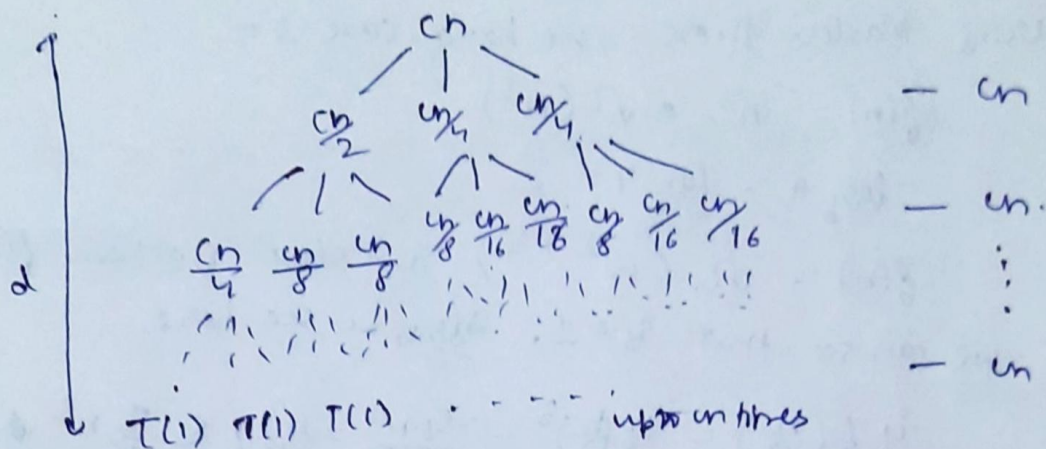 cn
cn/2 cn/4 cn/4 — cn
cn/4 cn/8 cn/8 cn/8 cn/16 cn/18 cn/8 cn/16 cn/16 — cn.
d
— cn
T(1) T(1) T(1) . - - - - . upto cn times